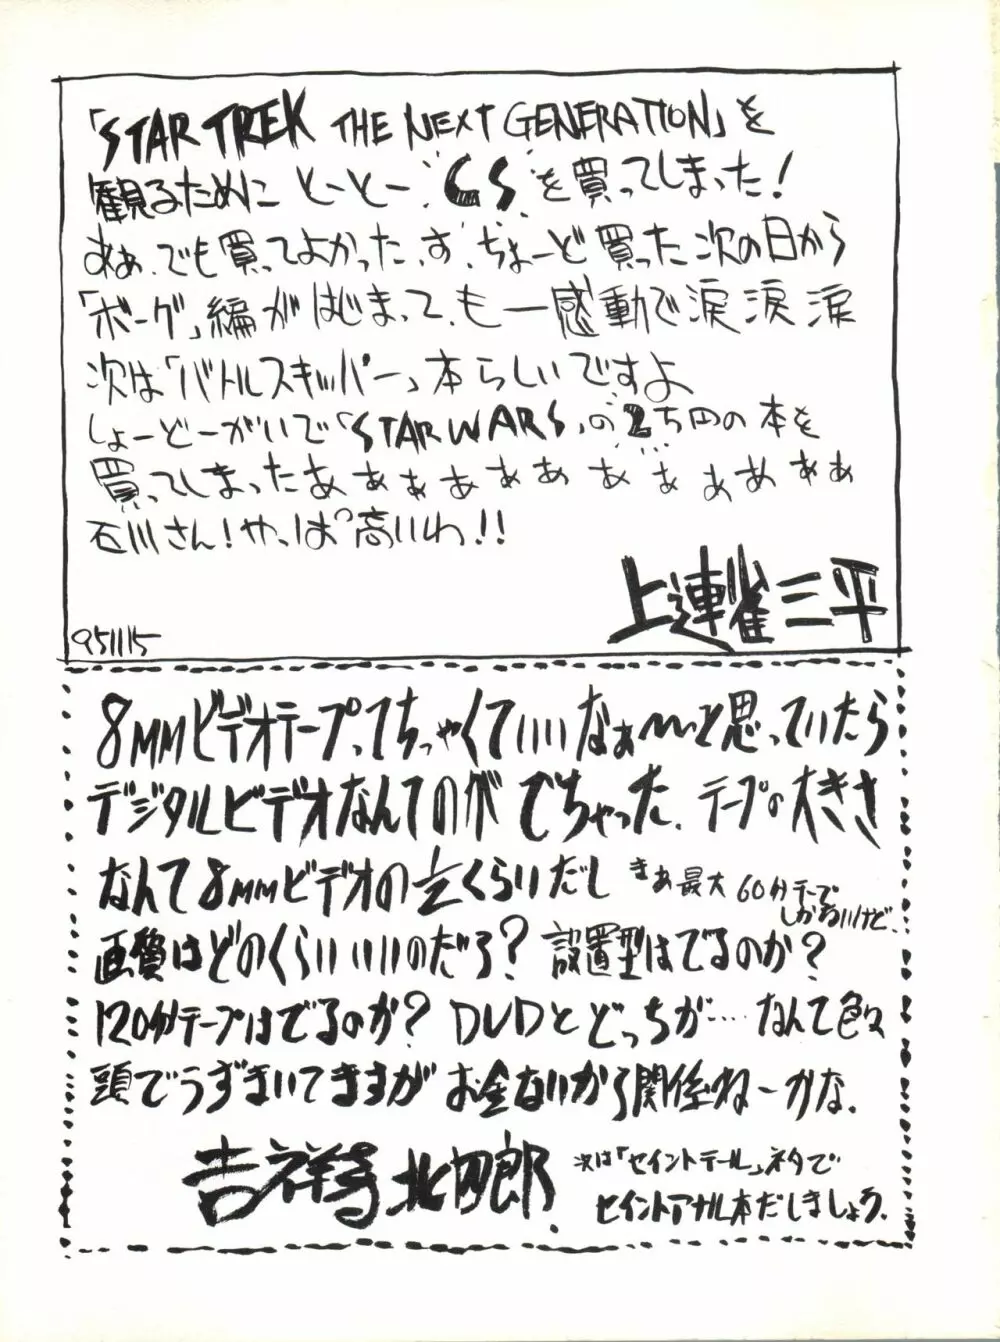 「STAR TREK THE NEXT GENERATION」を
観るために とーとー "CS" を買ってしまった!
あぁ、でも買ってよかったっす、ちょーど買った次の日から
「ボーグ」編がはじまって、も一感動で涙涙涙
次は「バトルスキッパー」本らしいですよ
しょーどーがいで「STAR WARS」の2ち円の本を
買ってしまったあぁぁぁぁぁぁぁぁぁぁぁ
石川さん!やっぱ高いわ!!
上連雀三平
951115
8MMビデオテープってちっちゃくていいなぁ〜と思っていたら
デジタルビデオなんてのがでちゃった、テープの大きさ
なんて8MMビデオの½くらいだし まぁ最大60分テープ
しかないけど、
画質はどのくらいいいのだろ?設置型はでるのか?
120分テープはでるのか?DVDとどっちが‥‥なんて色々
頭でうずまいてますがお金ないから関係ねーかな。
吉祥寺北四郎
次は「セイントテール」ネタで
セイントアナル本だしましょう。